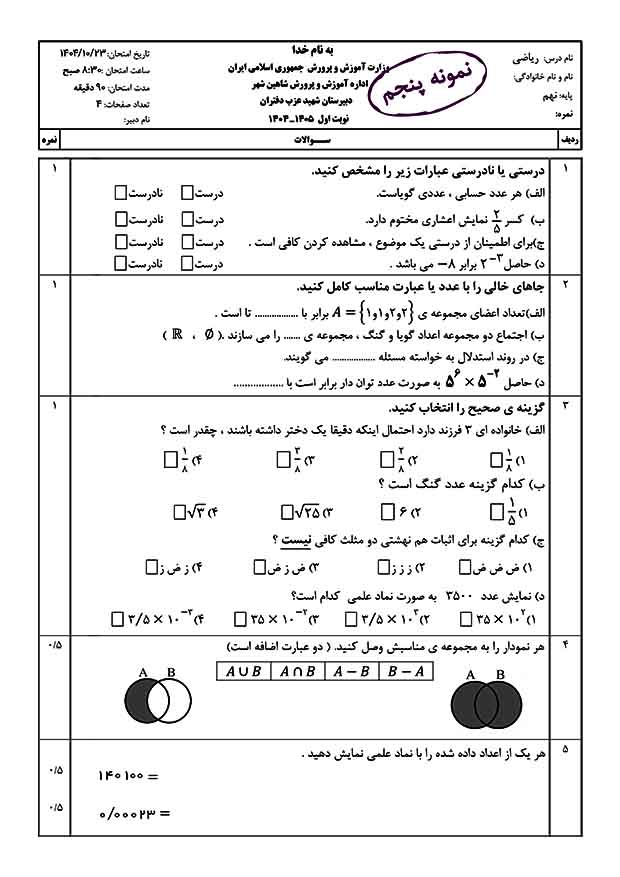 به نام خدا
نام درس: ریاضی
نام و نام خانوادگی:
پایه: نهم
نمره:
نمونه پنجم
وزارت آموزش و پرورش جمهوری اسلامی ایران
اداره آموزش و پرورش شاهین شهر
دبیرستان شهید عزب دفتران
نوبت اول ۱۴۰۵-۱۴۰۴
تاریخ امتحان: ۱۴۰۴/۱۰/۲۳
ساعت امتحان: ۸:۳۰ صبح
مدت امتحان: ۹۰ دقیقه
تعداد صفحات: ۴
نام دبیر:
ردیف سـوالات نمره
۱ درستی یا نادرستی عبارات زیر را مشخص کنید. ۱
الف) هر عدد حسابی ، عددی گویاست. درست □ نادرست □
ب) کسر ۲/۵ نمایش اعشاری مختوم دارد. درست □ نادرست □
ج)برای اطمینان از درستی یک موضوع ، مشاهده کردن کافی است . درست □ نادرست □
د) حاصل ۲⁻³ برابر ۸- می باشد . درست □ نادرست □
۲ جاهای خالی را با عدد یا عبارت مناسب کامل کنید. ۱
الف)تعداد اعضای مجموعه ی A = {۱و۱و۲و۲} برابر با ................. تا است .
ب) اجتماع دو مجموعه اعداد گویا و گنگ ، مجموعه ی ....... را می سازند .( ∅ ، ℝ )
ج) در روند استدلال به خواسته مسئله ................. می گویند.
د) حاصل ۵⁶ × ۵⁻² به صورت عدد توان دار برابر است با ..................
۳ گزینه ی صحیح را انتخاب کنید. ۱
الف) خانواده ای ۳ فرزند دارد احتمال اینکه دقیقا یک دختر داشته باشند ، چقدر است ؟
۱) ۱/۸ □ ۲) ۲/۸ □ ۳) ۳/۸ □ ۴) ۱/۸ □
ب) کدام گزینه عدد گنگ است ؟
۱) ۱/۵ □ ۲) ۶ □ ۳) √۲۵ □ ۴) √۳ □
ج) کدام گزینه برای اثبات هم نهشتی دو مثلث کافی نیست ؟
۱) ض ض ض □ ۲) ز ز ز □ ۳) ض ز ض □ ۴) ز ض ز □
د) نمایش عدد ۳۵۰۰ به صورت نماد علمی کدام است؟
۱) ۳۵ × ۱۰² □ ۲) ۳/۵ × ۱۰³ □ ۳) ۳۵ × ۱۰⁻² □ ۴) ۳/۵ × ۱۰⁻³ □
۴ هر نمودار را به مجموعه ی مناسبش وصل کنید. ( دو عبارت اضافه است) ۰/۵
A ∪ B A ∩ B A − B B − A
A B
A B
۵ هر یک از اعداد داده شده را با نماد علمی نمایش دهید .
۱۴۰۱۰۰ = ۰/۵
۰/۰۰۰۲۳ = ۰/۵